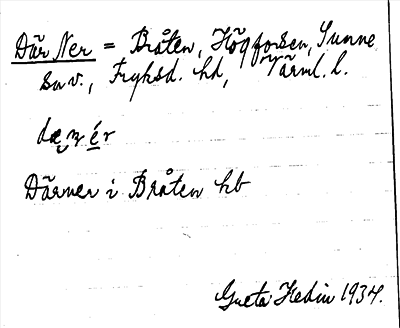 Där Ner = Bråten, Högforsen, Sunne
sn v., Fryksd. hd, Värml. l.
dæ̬ṇ ér
Därner i Bråten hb
Greta Hedin 1934.